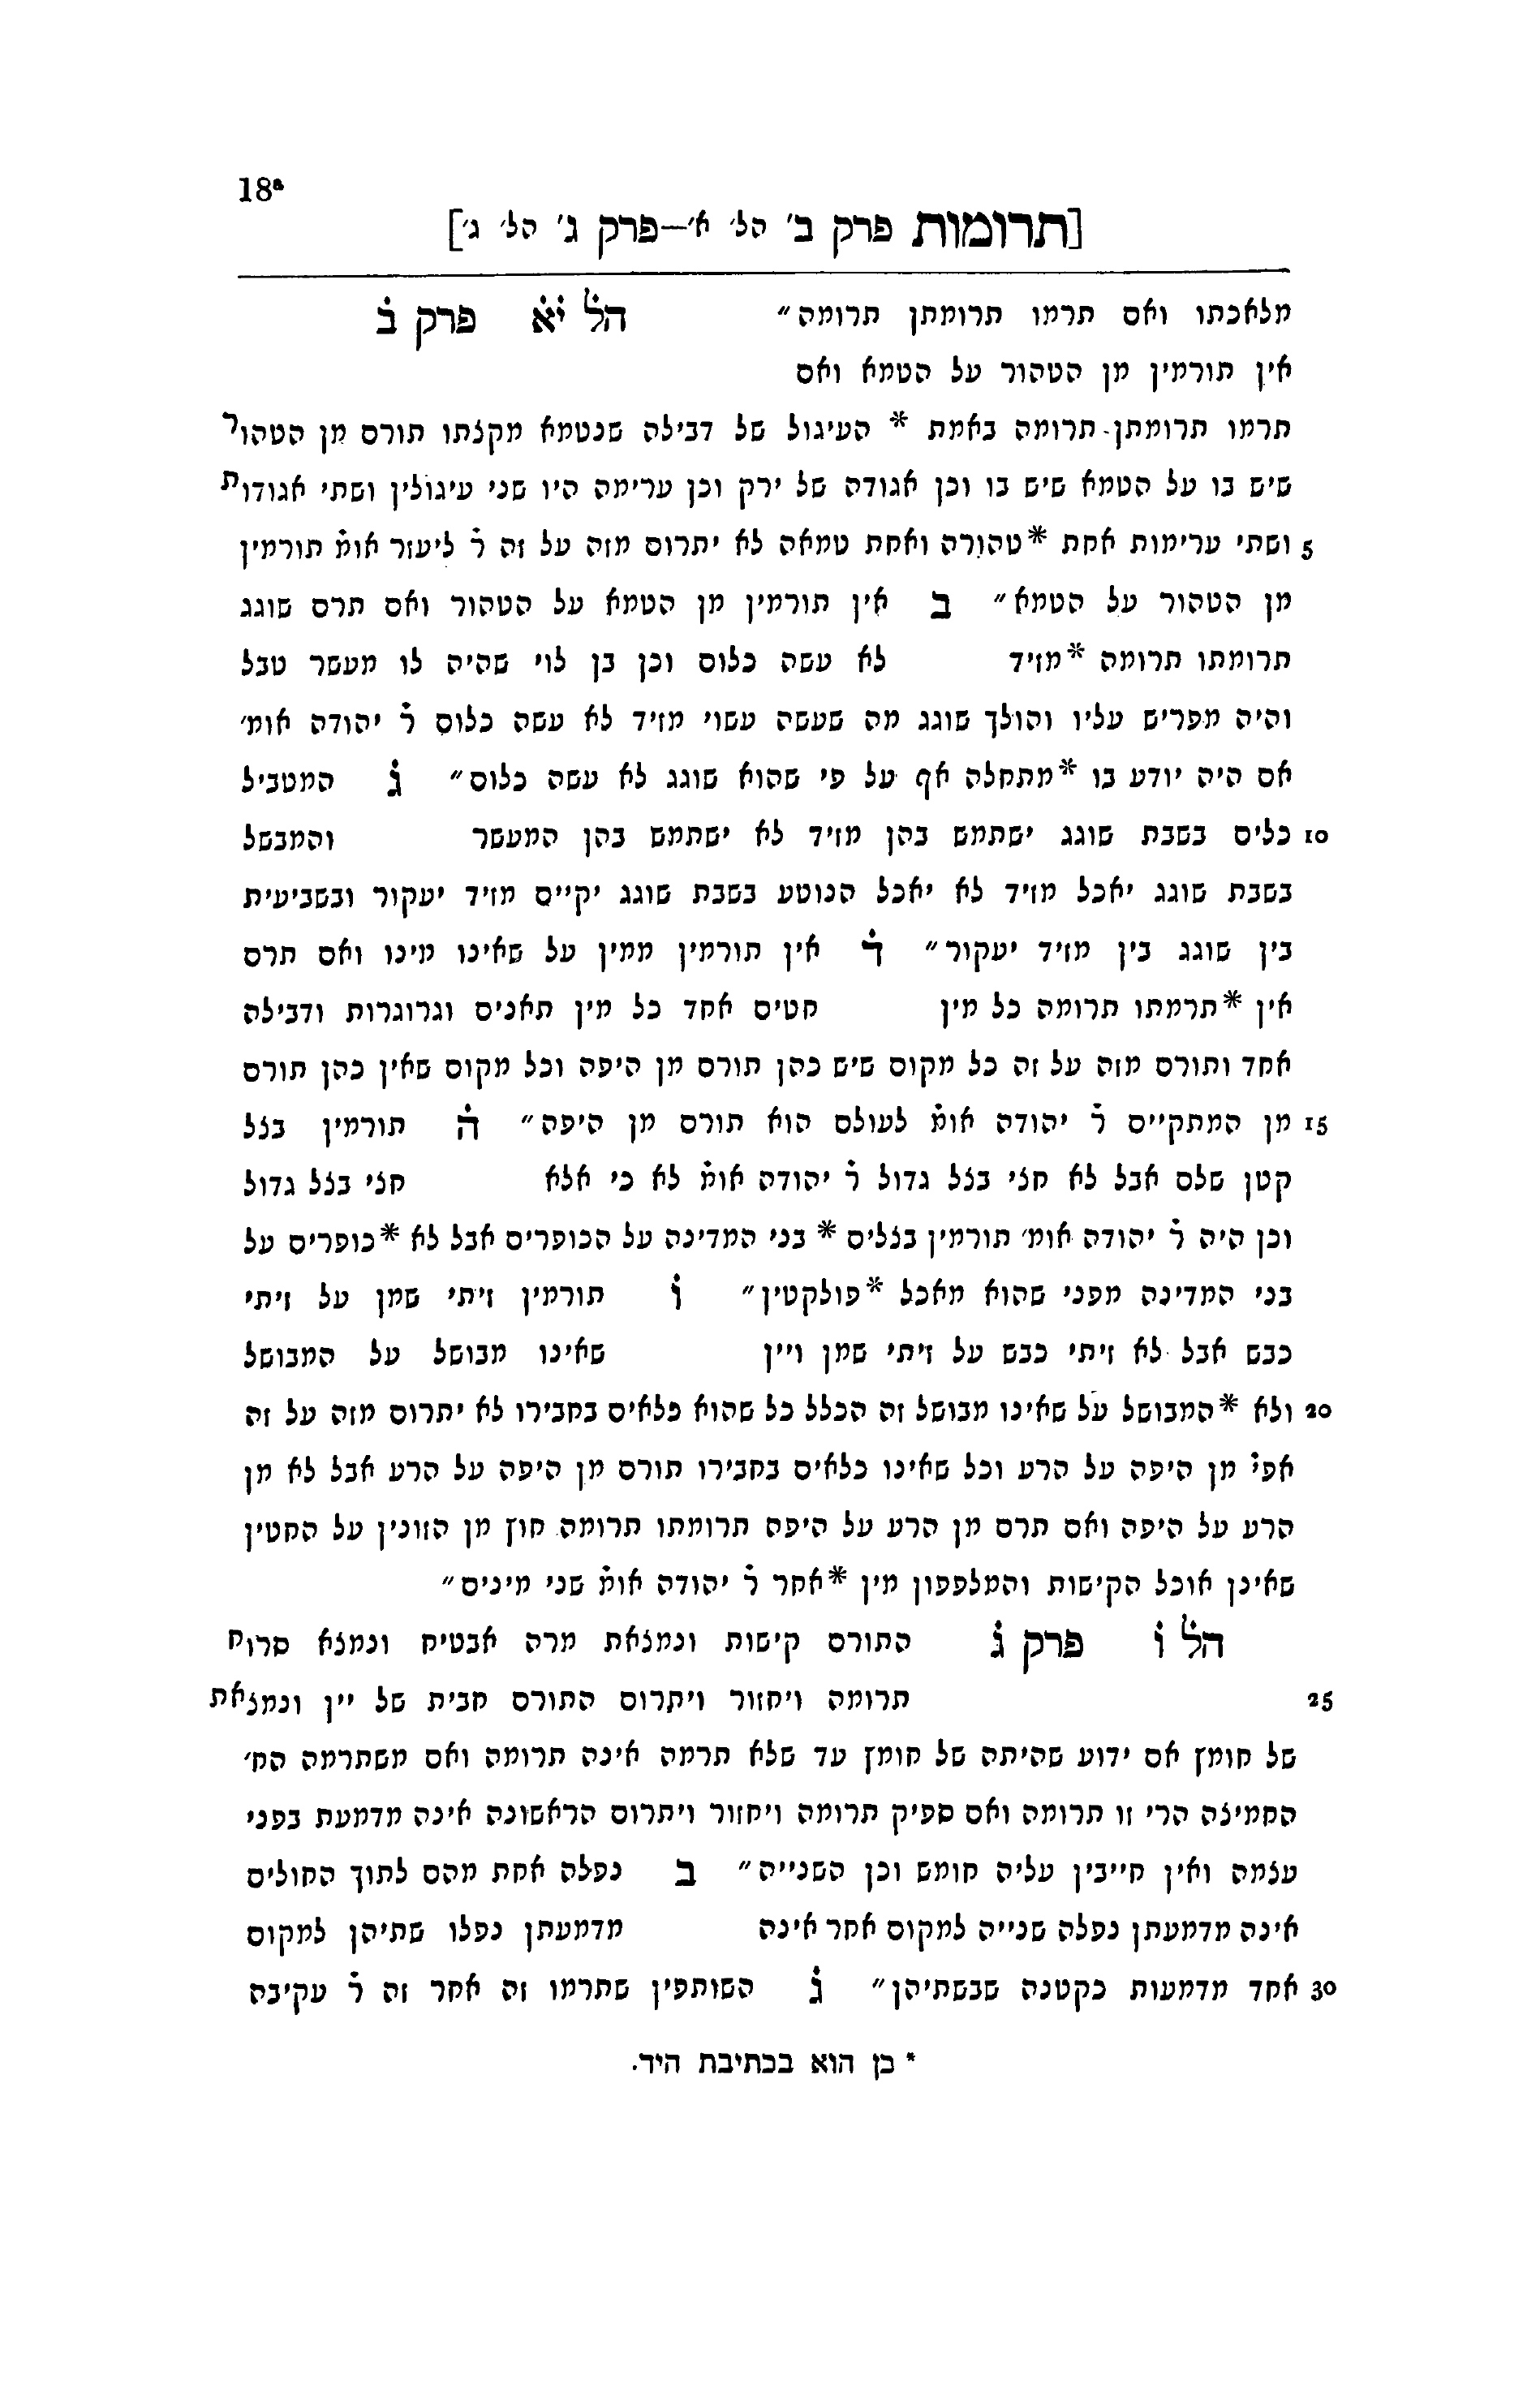 18ª
[תרומות פרק ב׳ הל׳ א׳—פרק ג׳ הל׳ ג׳]
מלאכתו ואם תרמו תרומתן תרומה״ הל׳ יא פרק ב
אין תורמין מן הטהור על הטמא ואם
תרמו תרומתן תרומה באמת * העיגול של דבילה שנטמא מקצתו תורם מן הטהור
שיש בו על הטמא שיש בו וכן אגודה של ירק וכן ערימה היו שני עיגולין ושתי אגודות
5 ושתי ערימות אחת *טהורה ואחת טמאה לא יתרום מזה על זה ר׳ ליעזר אומ׳ תורמין
מן הטהור על הטמא״ ב אין תורמין מן הטמא על הטהור ואם תרם שוגג
תרומתו תרומה *מזיד לא עשה כלום וכן בן לוי שהיה לו מעשר טבל
והיה מפריש עליו והולך שוגג מה שעשה עשוי מזיד לא עשה כלום ר׳ יהודה אומ׳
אם היה יודע בו *מתחלה אף על פי שהוא שוגג לא עשה כלום״ ג המטביל
10 כלים בשבת שוגג ישתמש בהן מזיד לא ישתמש בהן המעשר והמבשל
בשבת שוגג יאכל מזיד לא יאכל הנוטע בשבת שוגג יקיים מזיד יעקור ובשביעית
בין שוגג בין מזיד יעקור״ ד אין תורמין ממין על שאינו מינו ואם תרם
אין *תרמתו תרומה כל מין חטים אחד כל מין תאנים וגרוגרות ודבילה
אחד ותורם מזה על זה כל מקום שיש כהן תורם מן היפה וכל מקום שאין כהן תורם
15 מן המתקיים ר׳ יהודה אומ׳ לעולם הוא תורם מן היפה״ ה תורמין בצל
קטן שלם אבל לא חצי בצל גדול ר׳ יהודה אומ׳ לא כי אלא חצי בצל גדול
וכן היה ר׳ יהודה אומ׳ תורמין בצלים * בני המדינה על הכופרים אבל לא *כופרים על
בני המדינה מפני שהוא מאכל *פולקטין״ ו תורמין זיתי שמן על זיתי
כבש אבל לא זיתי כבש על זיתי שמן ויין שאינו מבושל על המבושל
20 ולא *המבושל על שאינו מבושל זה הכלל כל שהוא כלאים בחבירו לא יתרום מזה על זה
אפי׳ מן היפה על הרע וכל שאינו כלאים בחבירו תורם מן היפה על הרע אבל לא מן
הרע על היפה ואם תרם מן הרע על היפה תרומתו תרומה חוץ מן הזונין על החטין
שאינן אוכל הקישות והמלפפון מין *אחר ר׳ יהודה אומ׳ שני מינים״
הל׳ ו פרק ג התורם קישות ונמצאת מרה אבטיח ונמצא סרוח
25 תרומה ויחזור ויתרום התורם חבית של יין ונמצאת
של חומץ אם ידוע שהיתה של חומץ עד שלא תרמה אינה תרומה ואם משתרמה הח׳
החמיצה הרי זו תרומה ואם ספיק תרומה ויחזור ויתרום הראשונה אינה מדמעת בפני
עצמה ואין חייבין עליה חומש וכן השנייה״ ב נפלה אחת מהם לתוך החולים
אינה מדמעתן נפלה שנייה למקום אחר אינה מדמעתן נפלו שתיהן למקום
30 אחד מדמעות כקטנה שבשתיהן״ ג השותפין שתרמו זה אחר זה ר׳ עקיבה
* כן הוא בכתיבת היד.